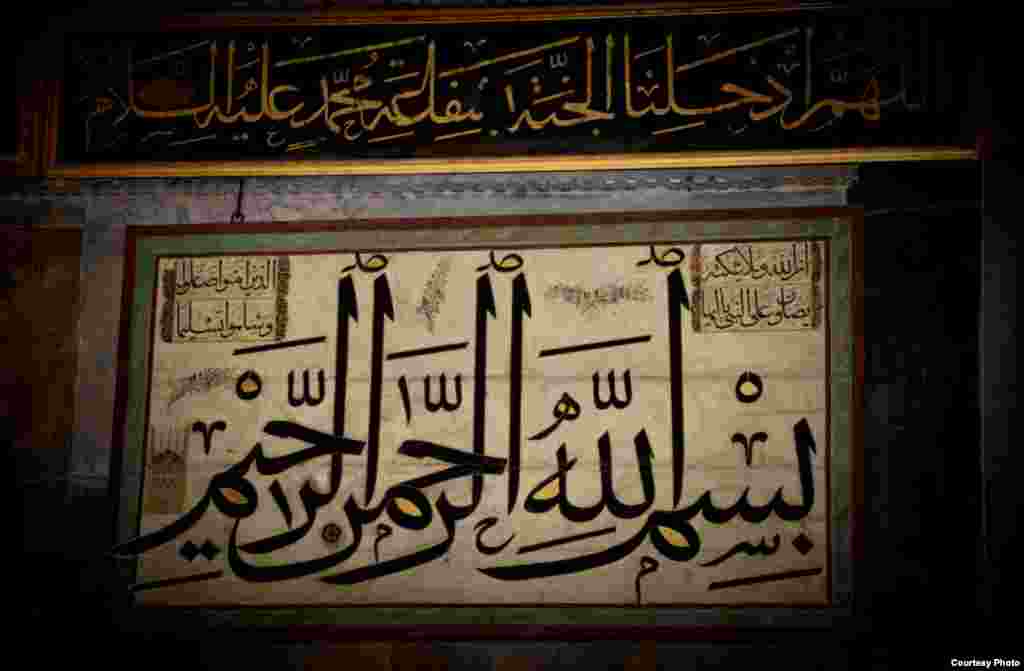 اللهم ادخلنا الجنة بشفاعة محمد عليه السلام
ان الله وملائكته
يصلون على النبي يا ايها
الذين امنوا صلوا
وسلموا تسليما
بسم الله الرحمن الرحيم
Courtesy Photo